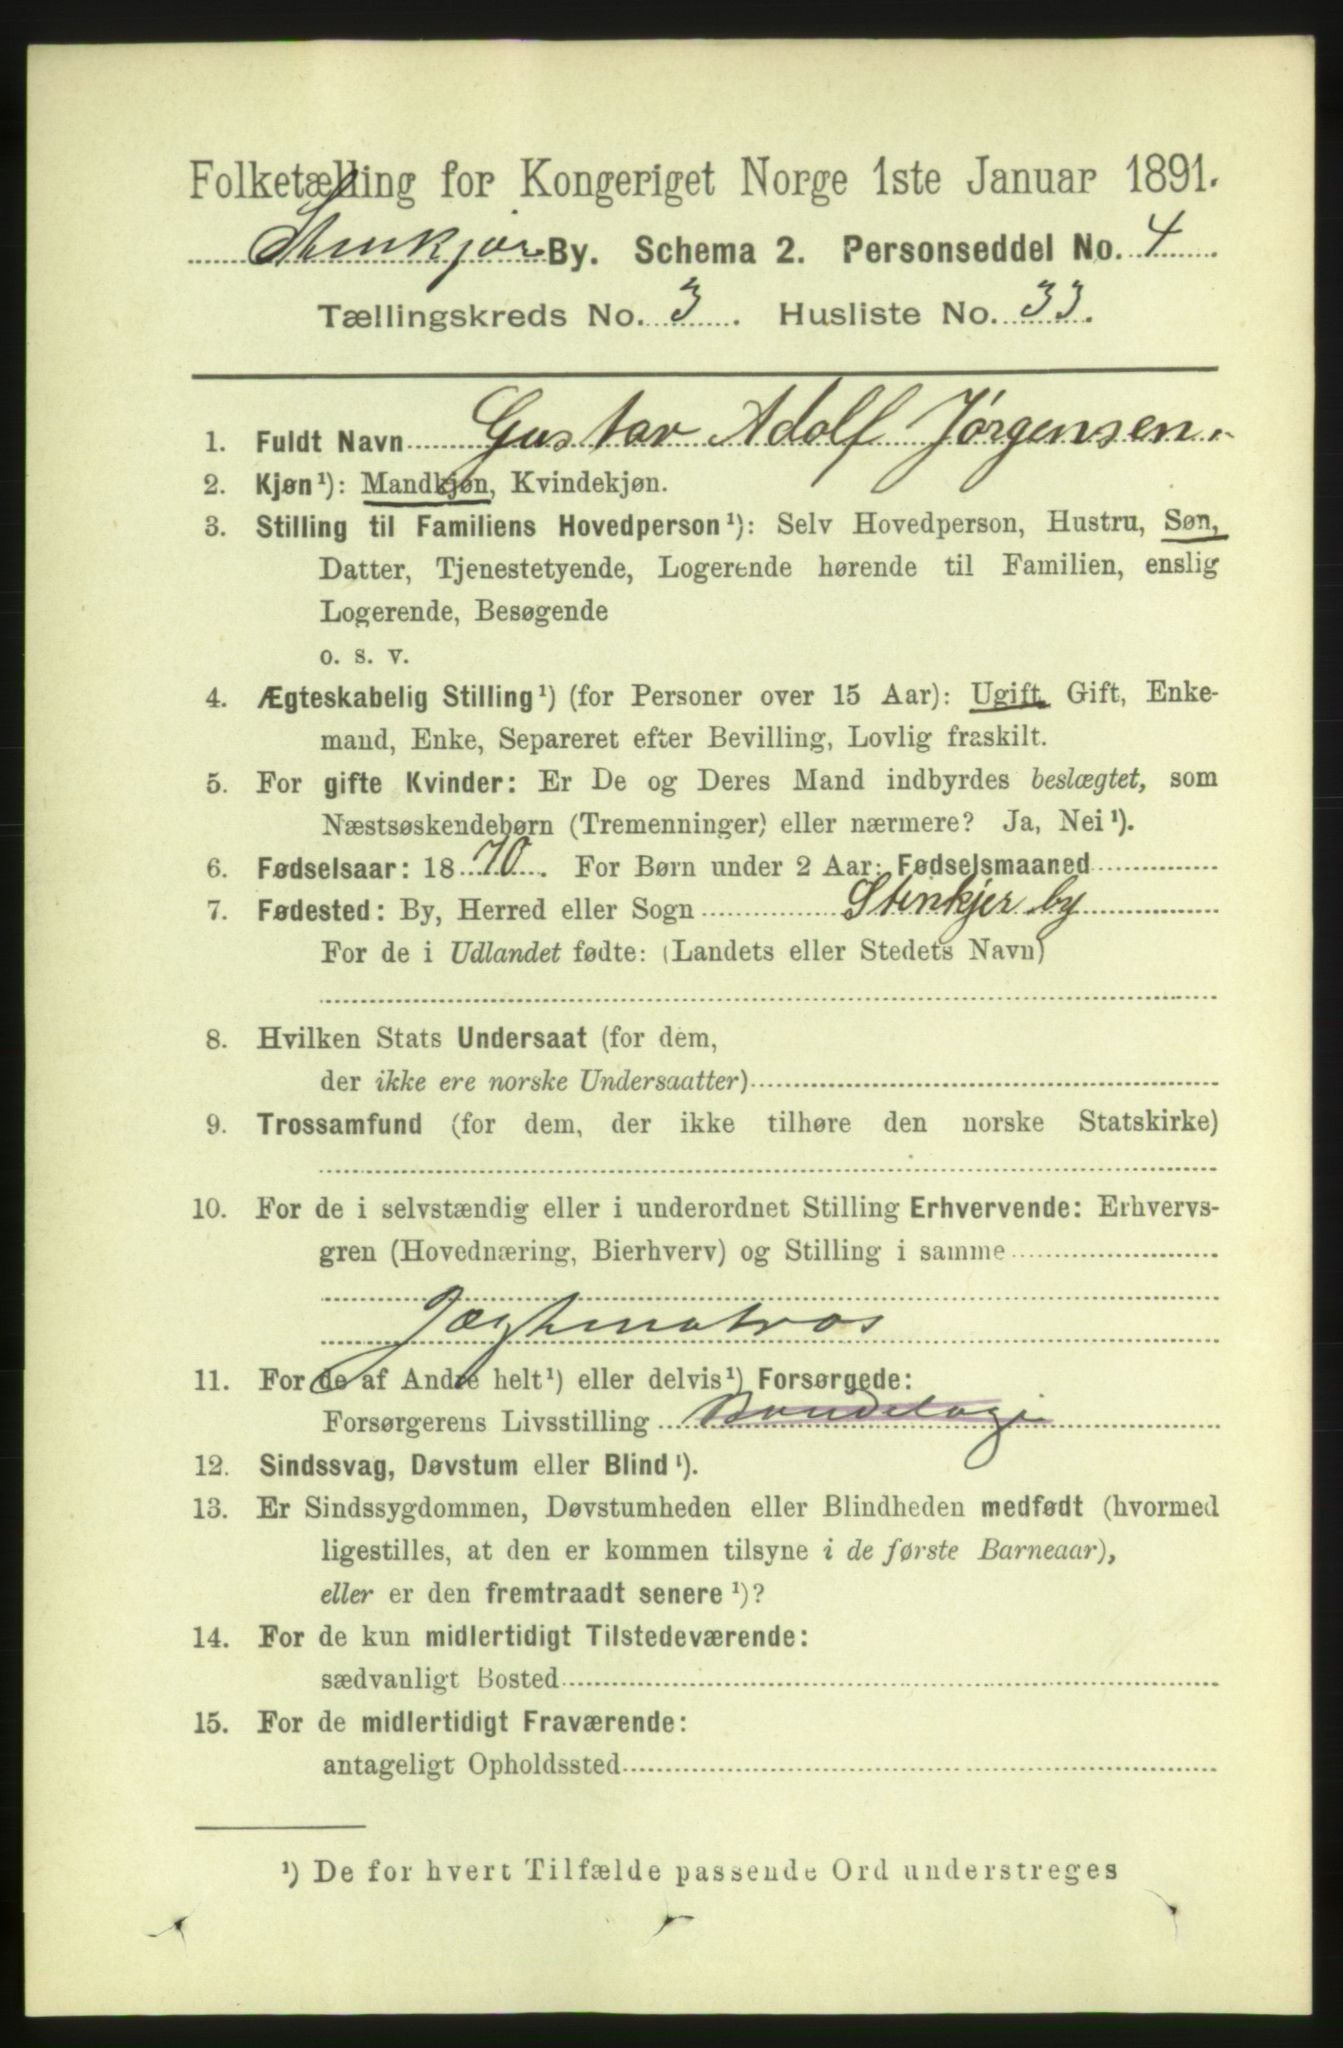 Folketælling for Kongeriget Norge 1ste Januar 1891.
Stenkjær By. Schema 2. Personseddel No. 4
Tællingskreds No. 3. Husliste No. 33.
1. Fuldt Navn Gustav Adolf Jørgensen.
2. Kjøn¹): Mandkjøn, Kvindekjøn.
3. Stilling til Familiens Hovedperson¹): Selv Hovedperson, Hustru, Søn,
Datter, Tjenestetyende, Logerende hørende til Familien, enslig
Logerende, Besøgende
o. s. v.
4. Ægteskabelig Stilling¹) (for Personer over 15 Aar): Ugift, Gift, Enke-
mand, Enke, Separeret efter Bevilling, Lovlig fraskilt.
5. For gifte Kvinder: Er De og Deres Mand indbyrdes beslægtet, som
Næstsøskendebørn (Tremenninger) eller nærmere? Ja, Nei¹).
6. Fødselsaar: 1870. For Børn under 2 Aar: Fødselsmaaned
7. Fødested: By, Herred eller Sogn Stenkjer by
For de i Udlandet fødte: (Landets eller Stedets Navn)
8. Hvilken Stats Undersaat (for dem,
der ikke ere norske Undersaatter)
9. Trossamfund (for dem, der ikke tilhøre den norske Statskirke)
10. For de i selvstændig eller i underordnet Stilling Erhvervende: Erhvervs-
gren (Hovednæring, Bierhverv) og Stilling i samme
Jægtmatros
11. For de af Andre helt¹) eller delvis¹) Forsørgede:
Forsørgerens Livsstilling
12. Sindssvag, Døvstum eller Blind¹).
13. Er Sindssygdommen, Døvstumheden eller Blindheden medfødt (hvormed
ligestilles, at den er kommen tilsyne i de første Barneaar),
eller er den fremtraadt senere¹)?
14. For de kun midlertidigt Tilstedeværende:
sædvanligt Bosted
15. For de midlertidigt Fraværende:
antageligt Opholdssted
¹) De for hvert Tilfælde passende Ord understreges